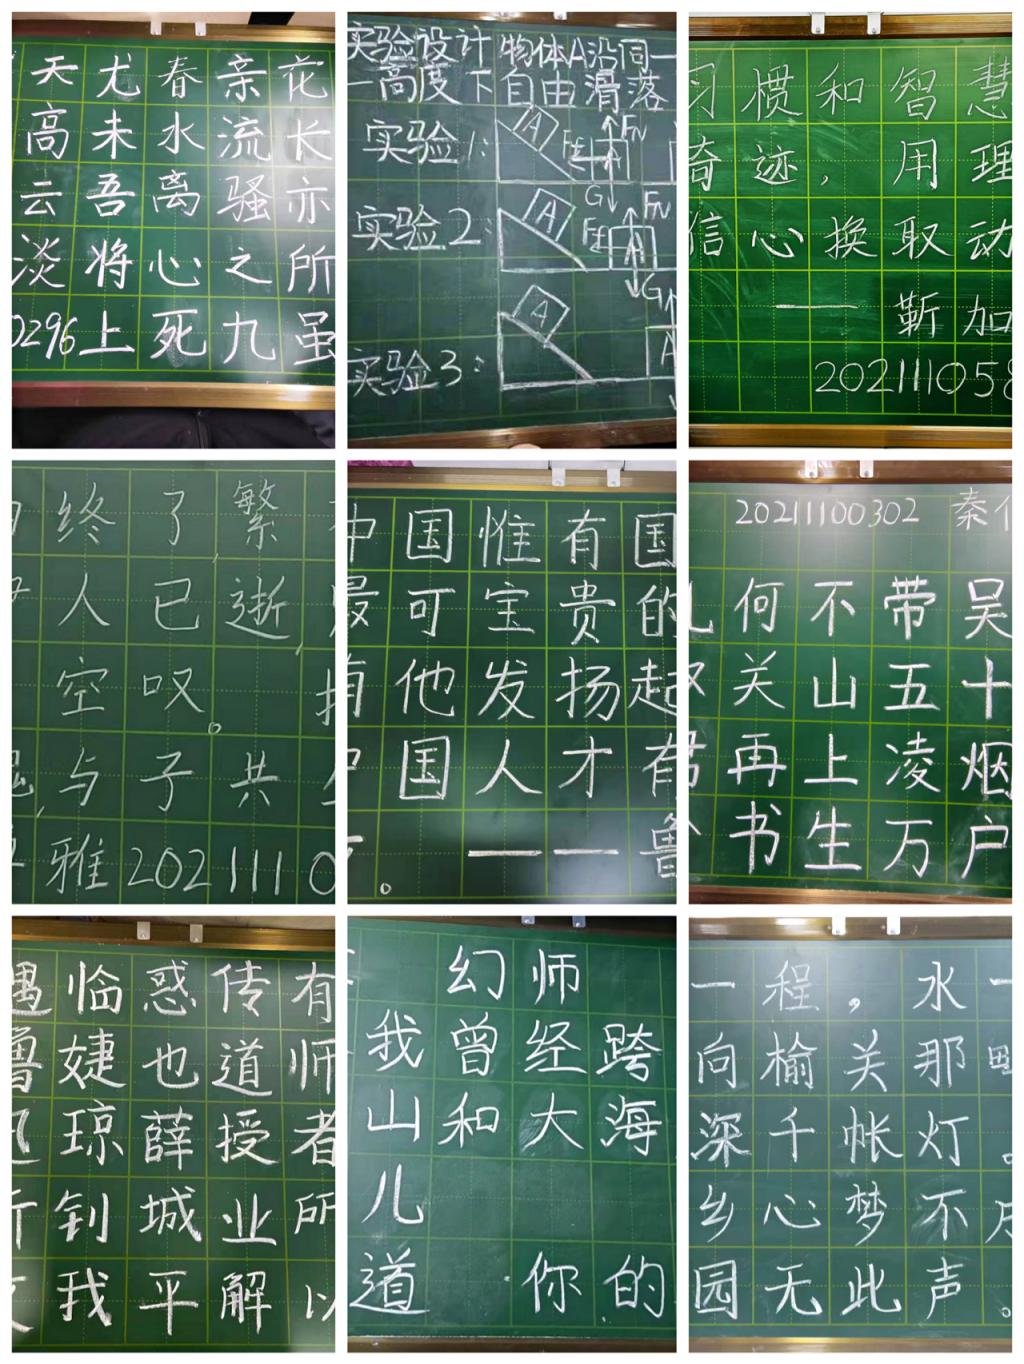 天尤春亲花
高未水流长
云吾离骚亦
淡将心之所
0296上死九虽
实验设计 物体A沿同一
一高度下自由滑落
实验1: A FN A G
实验2: A FN A G
实验3: A A
习惯和智慧
奇迹，用理
信心换取动
——靳加
202111058
终了，繁
人已逝，
空叹。
与子共
雅2021110
中国惟有国
最可宝贵的
有他发扬起
国人才有
。——鲁
20211100302 秦
何不带吴
关山五十
再上凌烟
书生万户
遇临惑传有
鲁婕也道师
迅琼薛授者
钊城业所
我平解以
幻师
我曾经跨
山和大海
儿
道 你的
一程，水一
向榆关那畔
深千帐灯。
乡心梦不
园无此声。